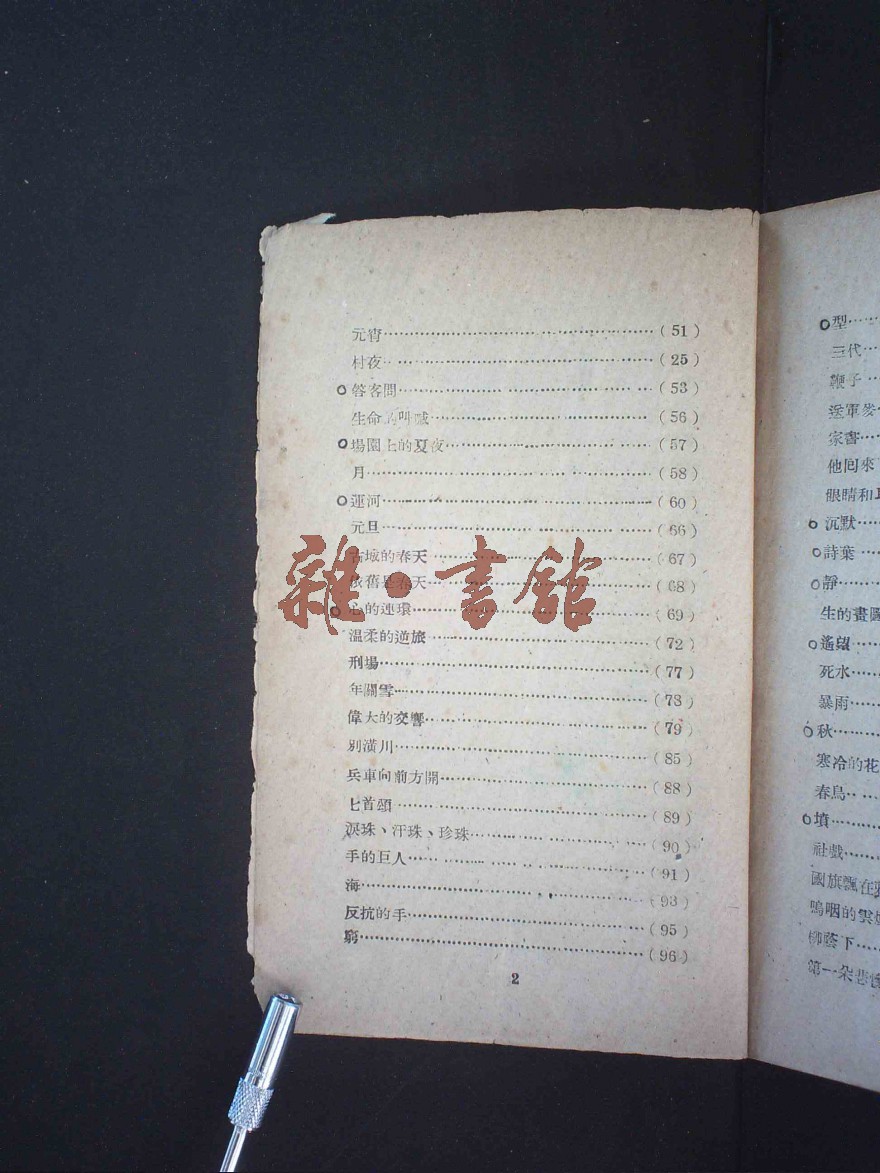 元宵……(51)
村夜……(25)
○答客問……(53)
生命的叫喊……(56)
○場園上的夏夜……(57)
月……(58)
○運河……(60)
元旦……(66)
古城的春天……(67)
依舊是春天……(68)
○心的連環……(69)
溫柔的逆旅……(72)
刑場……(77)
年關雪……(78)
偉大的交響……(79)
別潢川……(85)
兵車向前方開……(88)
匕首頌……(89)
淚珠、汗珠、珍珠……(90)
手的巨人……(91)
海……(93)
反抗的手……(95)
窮……(96)
2
雜·書館
○型……
三代……
鞭子……
送軍麥……
家書……
他回來
眼睛和
○沉默……
○詩葉……
○靜……
生的畫圖
○遙望……
死水……
暴雨……
○秋……
寒冷的花
春鳥……
○墳……
社戲……
國旗飄在
嗚咽的雲烟
柳蔭下……
第一朵悲慘